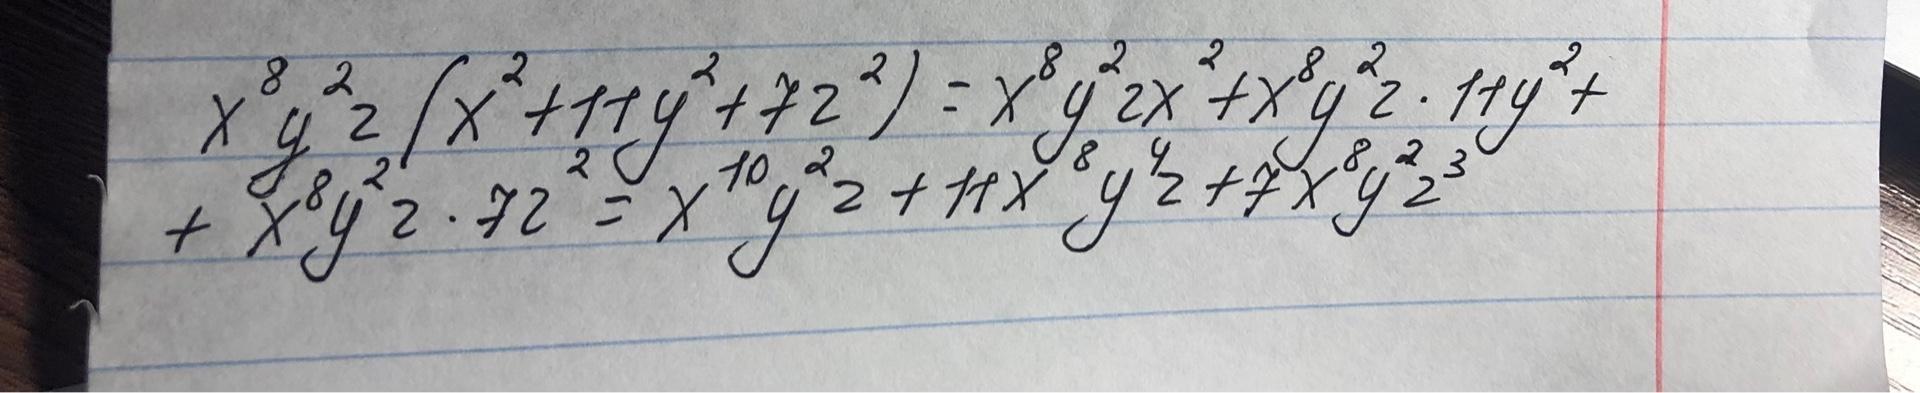 x⁸y²z(x²+11y²+7z²)=x⁸y²zx²+x⁸y²z·11y²+
+x⁸y²z·7z²=x¹⁰y²z+11x⁸y⁴z+7x⁸y²z³